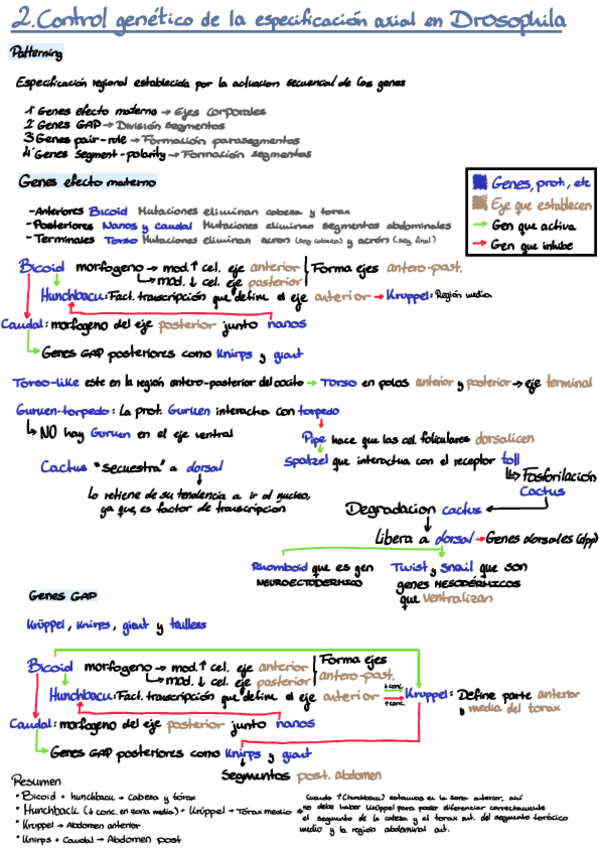 2. Control genético de la especificación axial en Drosophila
Patterning
Especificación regional establecida por la actuacion secuencial de los genes
1º Genes efecto materno → Ejes corporales
2º Genes GAP → División segmentos
3º Genes pair-rule → Formación parasegmentos
4º Genes Segment-polarity → Formación segmentos
Genes efecto materno
Genes, prot, etc
Eje que establecen
Gen que activa
Gen que inhibe
-Anteriores Bicoid Mutaciones eliminan cabeza y torax
-Posteriores Nanos y caudal Mutaciones eliminan segmentos abdominales
-Terminales Torso Mutaciones eliminan acron (seg cabeza) y acrón (seg final)
Bicoid morfogeno → mod. ↑ cel. eje anterior
↳ mod. ↓ cel. eje posterior
Forma ejes antero-post.
Hunchback: Fact. transcripción que define el eje anterior → Kruppel: Región media
Caudal: morfogeno del eje posterior junto nanos
→ Genes GAP posteriores como Knirps y giant
Torso-like este en la región antero-posterior del oocito → Torso en polos anterior y posterior → eje terminal
Gurken-torpedo: La prot. Gurken interactua con torpedo
↳ NO hay Gurken en el eje ventral
Pipe hace que las cel. foliculares dorsalicen
Spatzel que interactua con el receptor toll
↳ Fosforilación
Cactus
Cactus "secuestra" a dorsal
Lo retiene de su tendencia a ir al nucleo,
ya que, es factor de transcripcion
Degradacion cactus
Libera a dorsal → Genes dorsales (dpp)
Rhomboid que es gen
NEUROECTODERMICO
Twist y Snail que son
genes MESODÉRMICOS
que ventralizan
Genes GAP
Krüppel, Knirps, giant y tailless
Bicoid morfogeno → mod. ↑ cel. eje anterior
↳ mod. ↓ cel. eje posterior
Forma ejes
antero-post.
Hunchback: Fact. transcripción que define el eje anterior
↓ conc.
↑ conc.
Kruppel: Define parte anterior
y media del torax
Caudal: morfogeno del eje posterior junto nanos
→ Genes GAP posteriores como Knirps y giant
Segmentos post. abdomen
Resumen
• Bicoid + hunchback → Cabeza y tórax
• Hunchback (↓ conc. en zona media) + Krüppel → Tórax medio
• Kruppel → Abdomen anterior
• Knirps + Caudal → Abdomen post
Cuando ↑ (hunchback) estamos en la zona anterior, así
no debe haber Krüppel para poder diferenciar correctamente
el segmento de la cabeza y el torax ant. del segmento torácico
medio y la región abdominal ant.